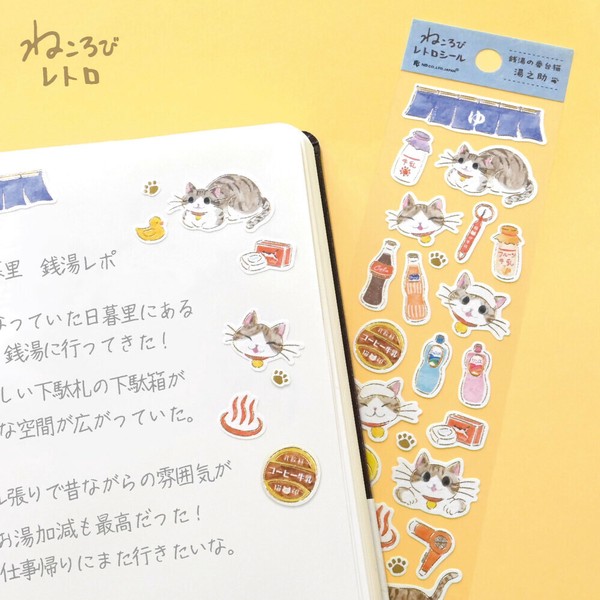 ねころび
レトロ
ねころび
レトロシール
銭湯の番台猫
湯之助
ゆ
牛乳
Cola
フルーツ
牛乳
コーヒー牛乳
里 銭湯レポ
なっていた日暮里にある
銭湯に行ってきた!
しい下駄札の下駄箱が
な空間が広がっていた。
コーヒー牛乳
ル張りで昔ながらの雰囲気が
お湯加減も最高だった!
仕事帰りにまた行きたいな。